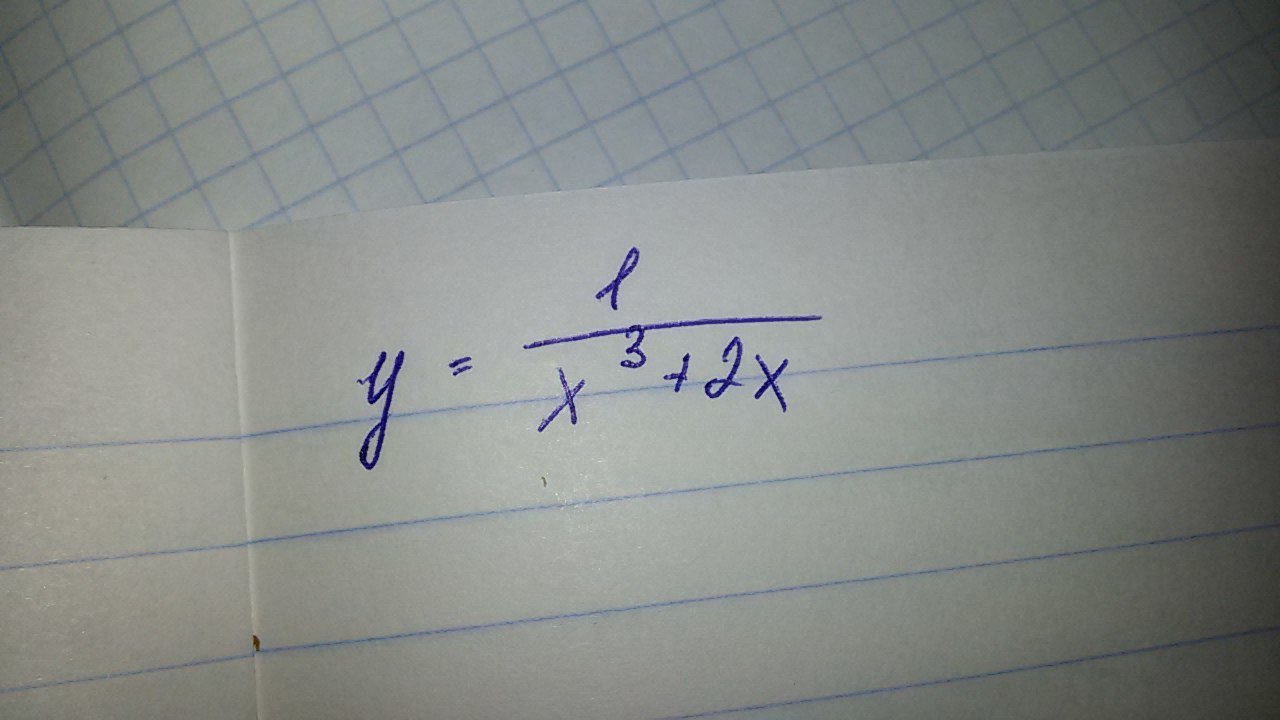 y = 1 / (x^3 + 2x)